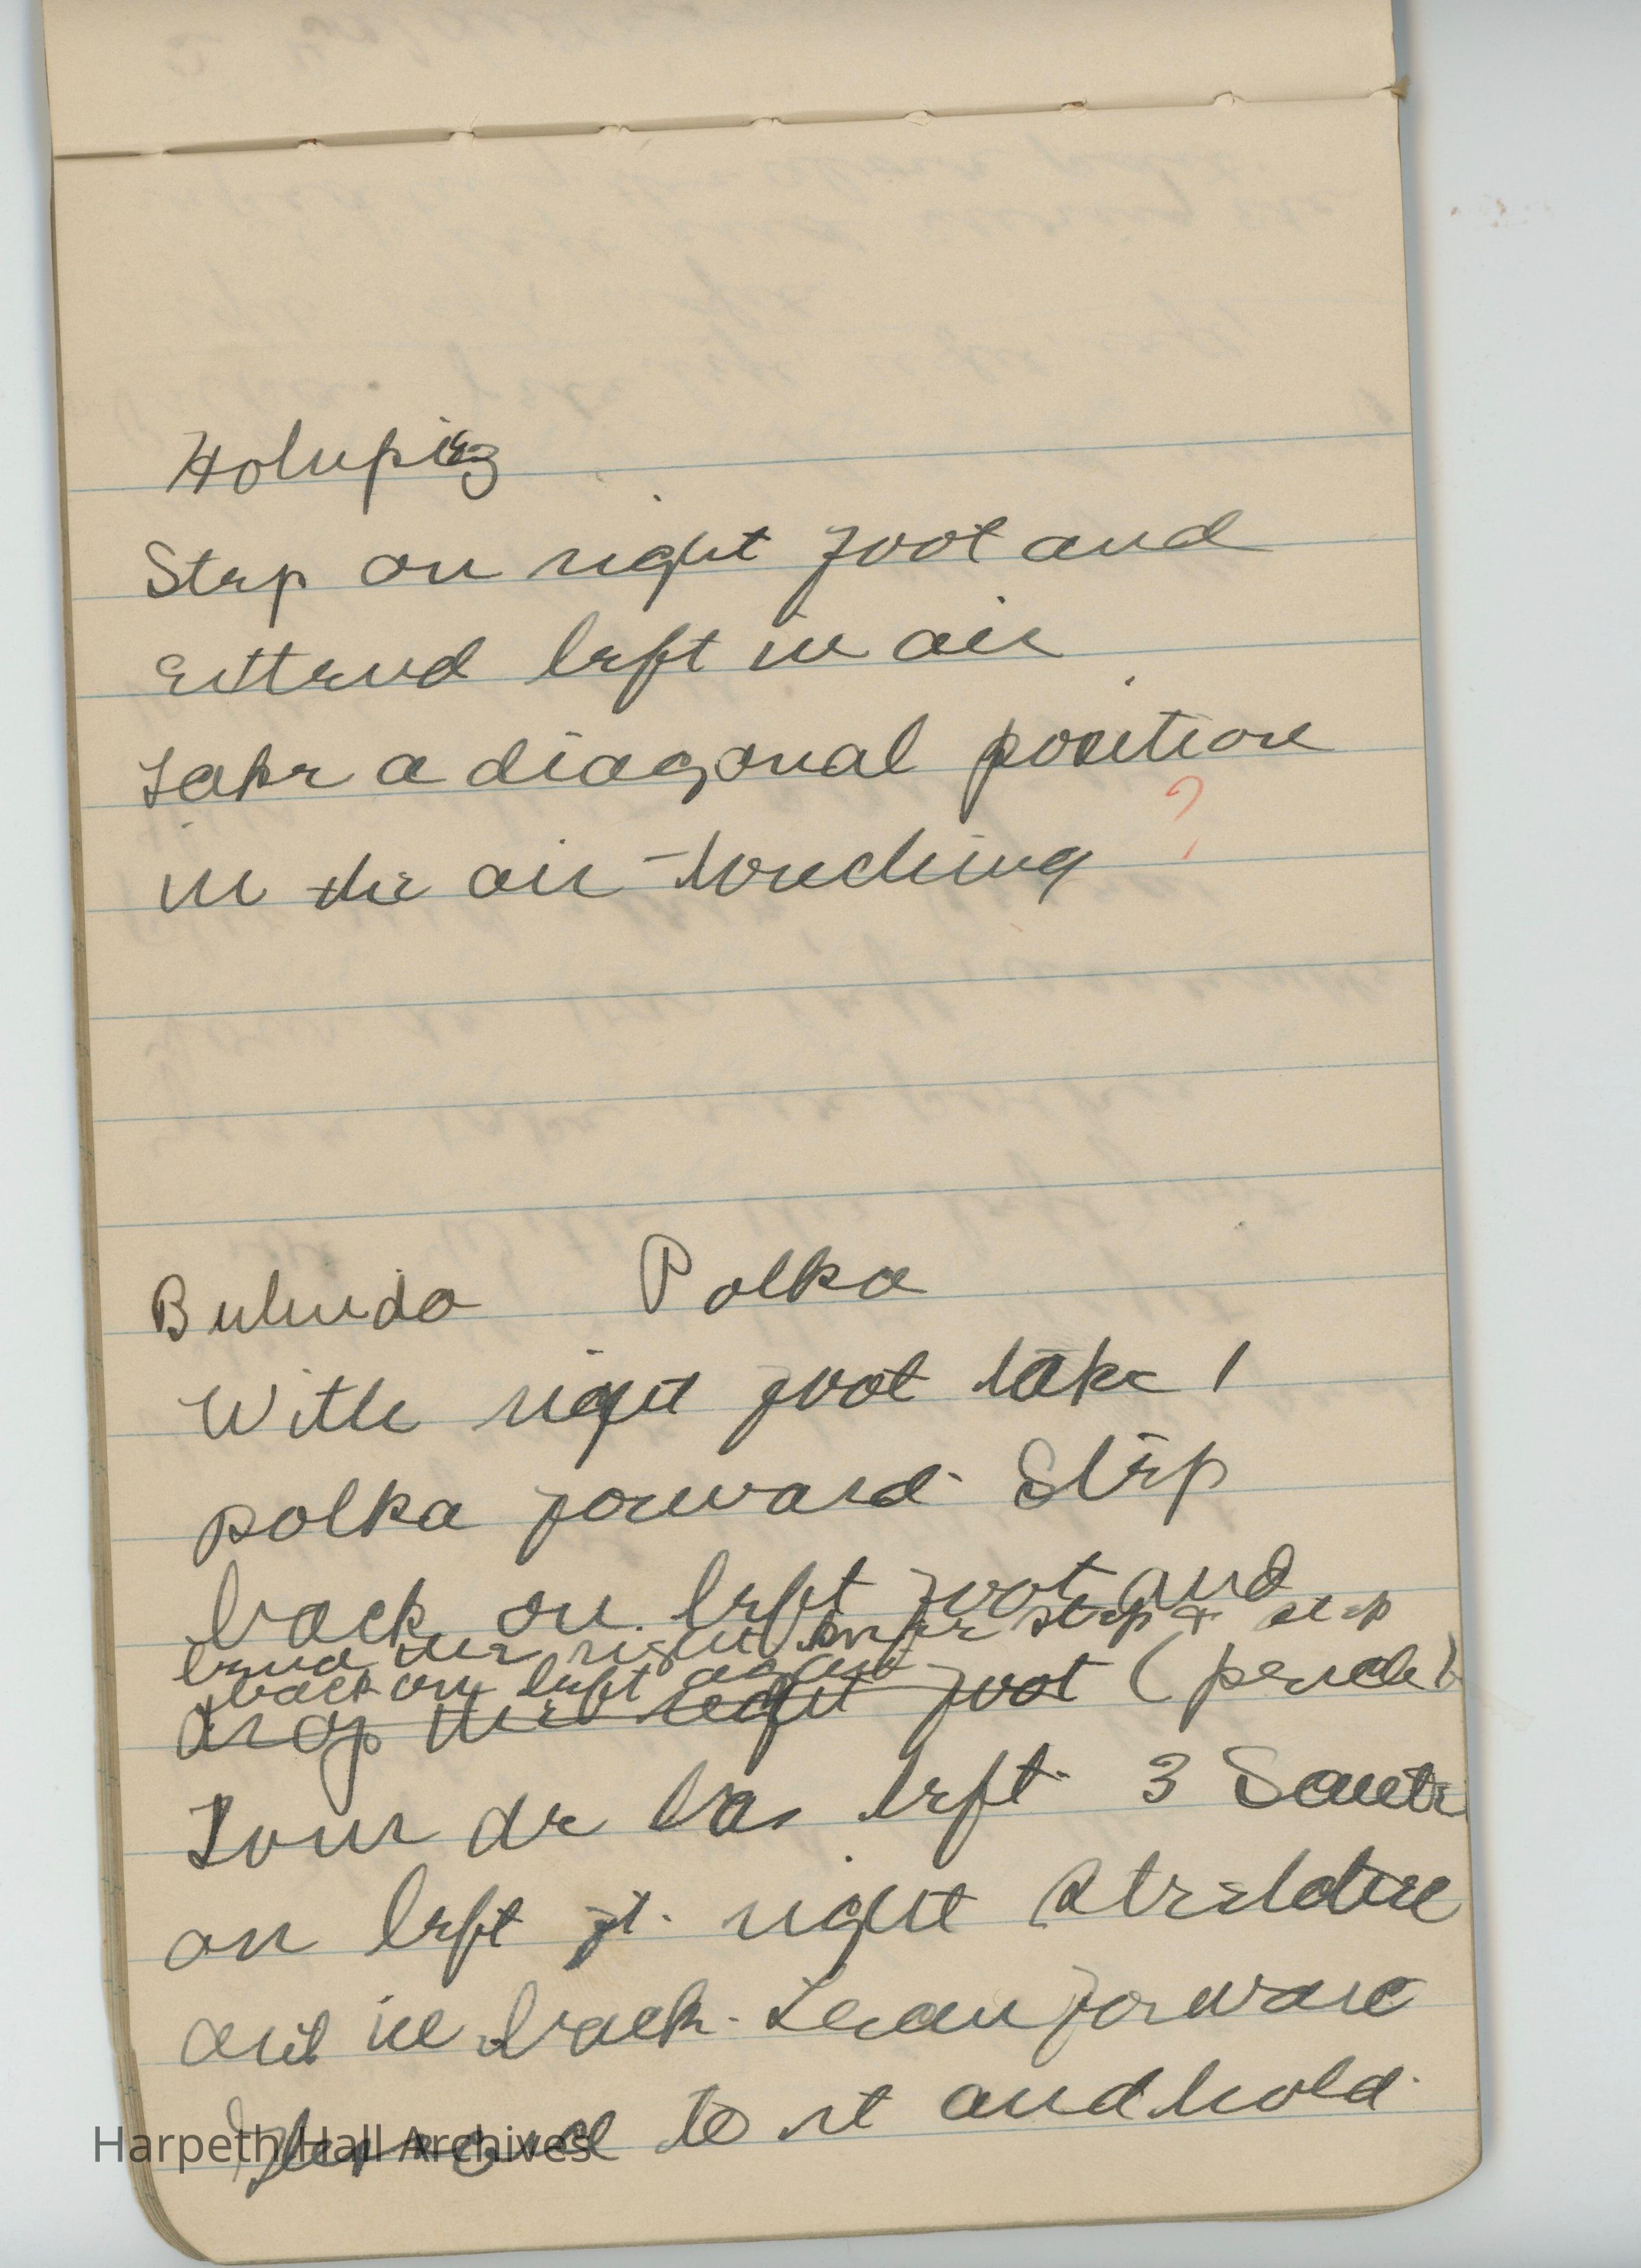 Holupiez
Step on right foot and
Extend left in air
Take a diagonal position
in the air - touching ?
Polka
With right foot take 1
polka forward. Step
back on left foot and
bend the right knee step & step
back on left again
drop the right foot (
Tour de bas left. 3 Saute
on left ft. right
out in back. Lean forward
to rt and hold.
Harpeth Hall Archives